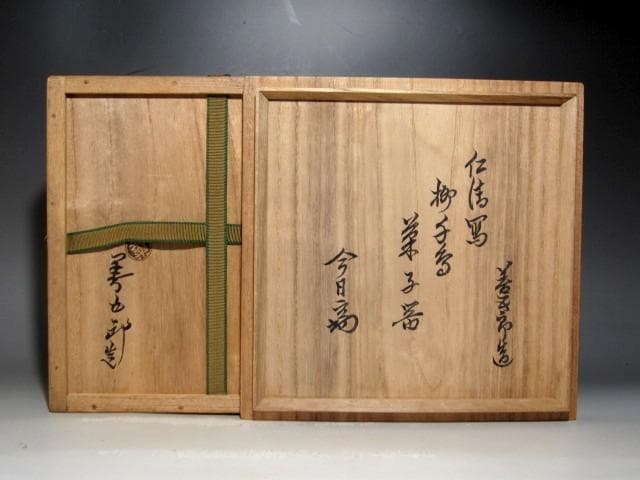 善五郎造
仁清寫
柳千鳥
菓子器
今日庵
善五郎